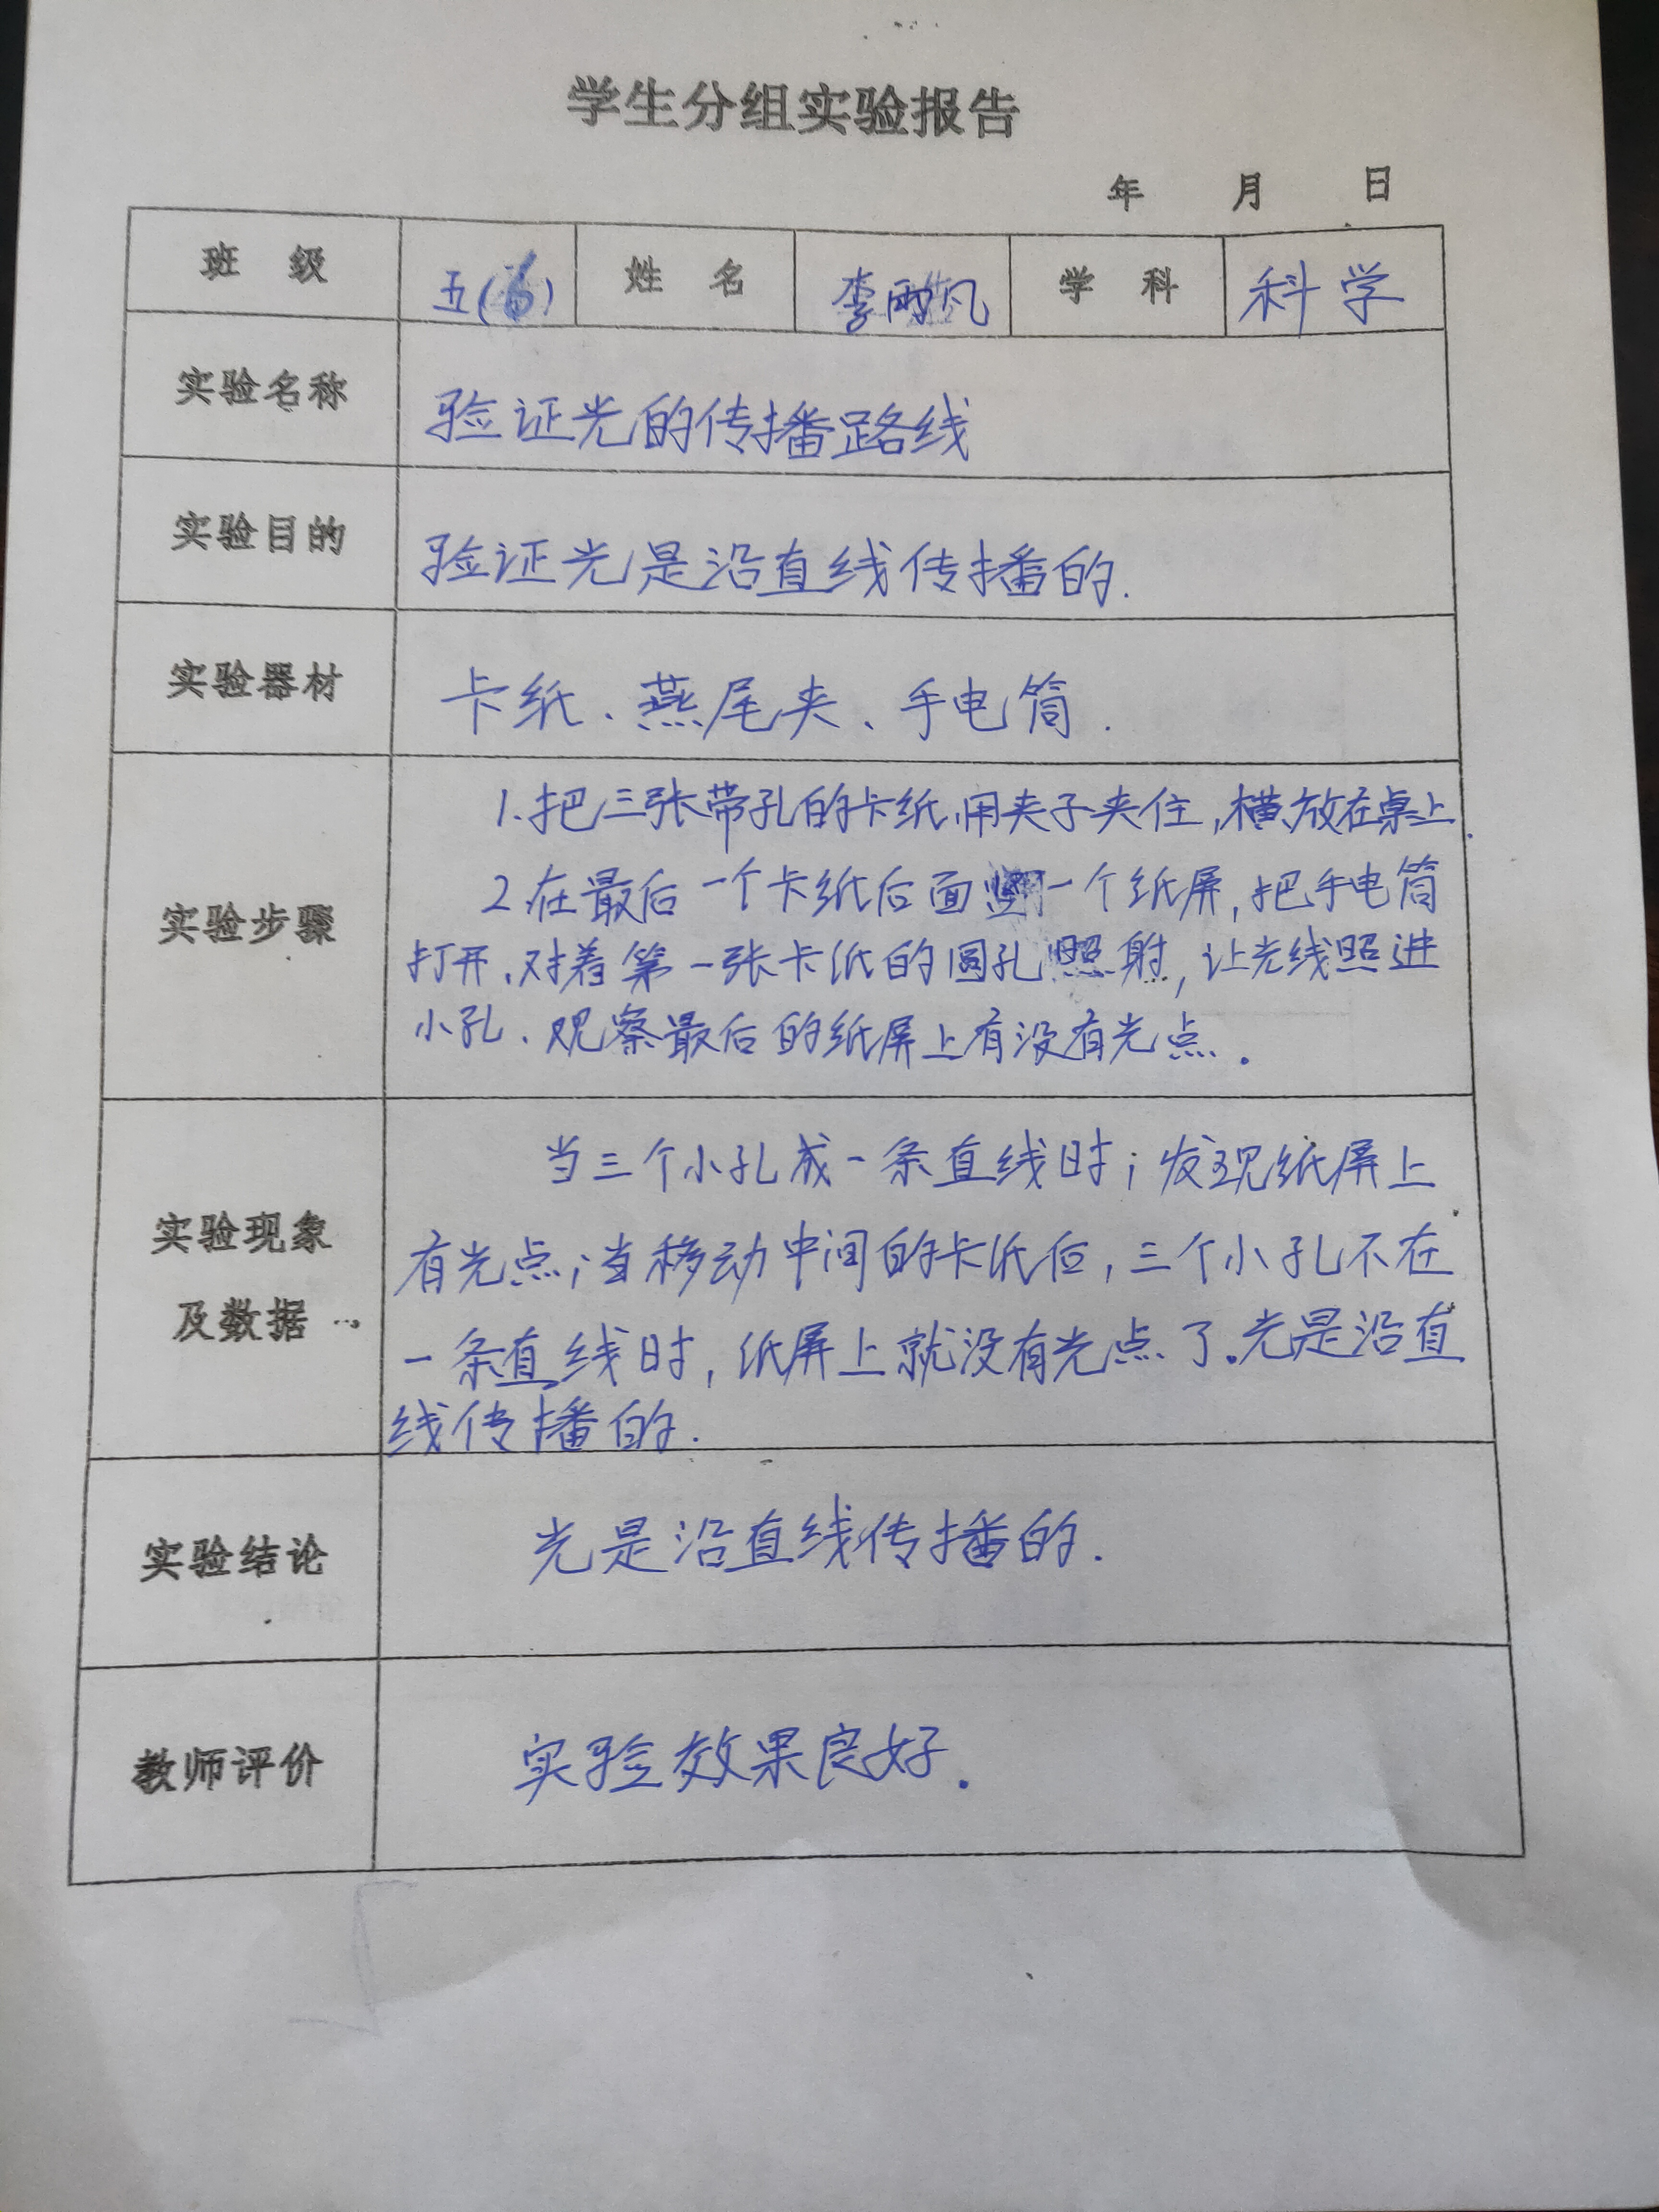 学生分组实验报告
年 月 日
班 级 五( ) 姓 名 李雨凡 学 科 科学
实验名称 验证光的传播路线
实验目的 验证光是沿直线传播的.
实验器材 卡纸、燕尾夹、手电筒.
实验步骤
1.把三张带孔的卡纸,用夹子夹住,横放在桌上.
2.在最后一个卡纸后面 一个纸屏,把手电筒
打开、对着第一张卡纸的圆孔照射,让光线照进
小孔、观察最后的纸屏上有没有光点.
实验现象
及数据
当三个小孔成一条直线时;发现纸屏上
有光点;当移动中间的卡纸后,三个小孔不在
一条直线时,纸屏上就没有光点了.光是沿直
线传播的.
实验结论 光是沿直线传播的.
教师评价 实验效果良好.